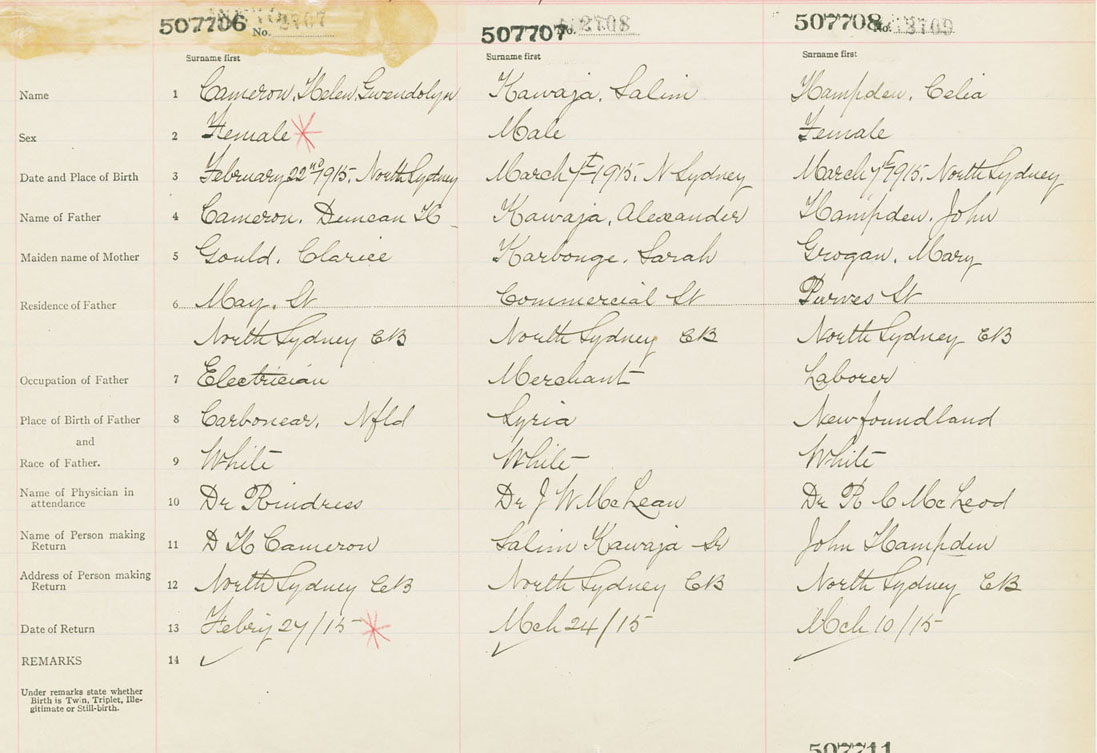 507706 No. 2707 507707 No. 2708 507708 No. 2709
Surname first Surname first Surname first
Name 1 Cameron, Helen Gwendolyn Kawaja, Salim Hampden, Celia
Sex 2 Female Male Female
Date and Place of Birth 3 February 22nd 1915. North Sydney March 1st 1915. N Sydney March 1st 1915. North Sydney
Name of Father 4 Cameron, Duncan H Kawaja, Alexander Hampden, John
Maiden name of Mother 5 Gould, Clarice Karbouge, Sarah Grogan, Mary
Residence of Father 6 May. St Commercial St Purves St
North Sydney CB North Sydney CB North Sydney CB
Occupation of Father 7 Electrician Merchant Laborer
Place of Birth of Father 8 Carbonear, Nfld Syria Newfoundland
and
Race of Father. 9 White White White
Name of Physician in
attendance 10 Dr Rindress Dr J W McLean Dr R C McLeod
Name of Person making
Return 11 D H Cameron Salim Kawaja Sr John Hampden
Address of Person making
Return 12 North Sydney CB North Sydney CB North Sydney CB
Date of Return 13 Febry 27/15 Mch 24/15 Mch 10/15
REMARKS 14
Under remarks state whether
Birth is Twin, Triplet, Ille-
gitimate or Still-birth.
507711